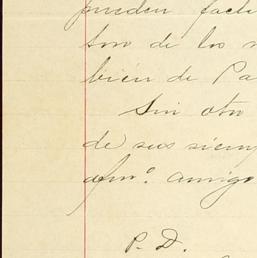 pueden facil
tor de los
bién de Pa
Sin otro
de sus siemp
afmo. amigo
P. D.